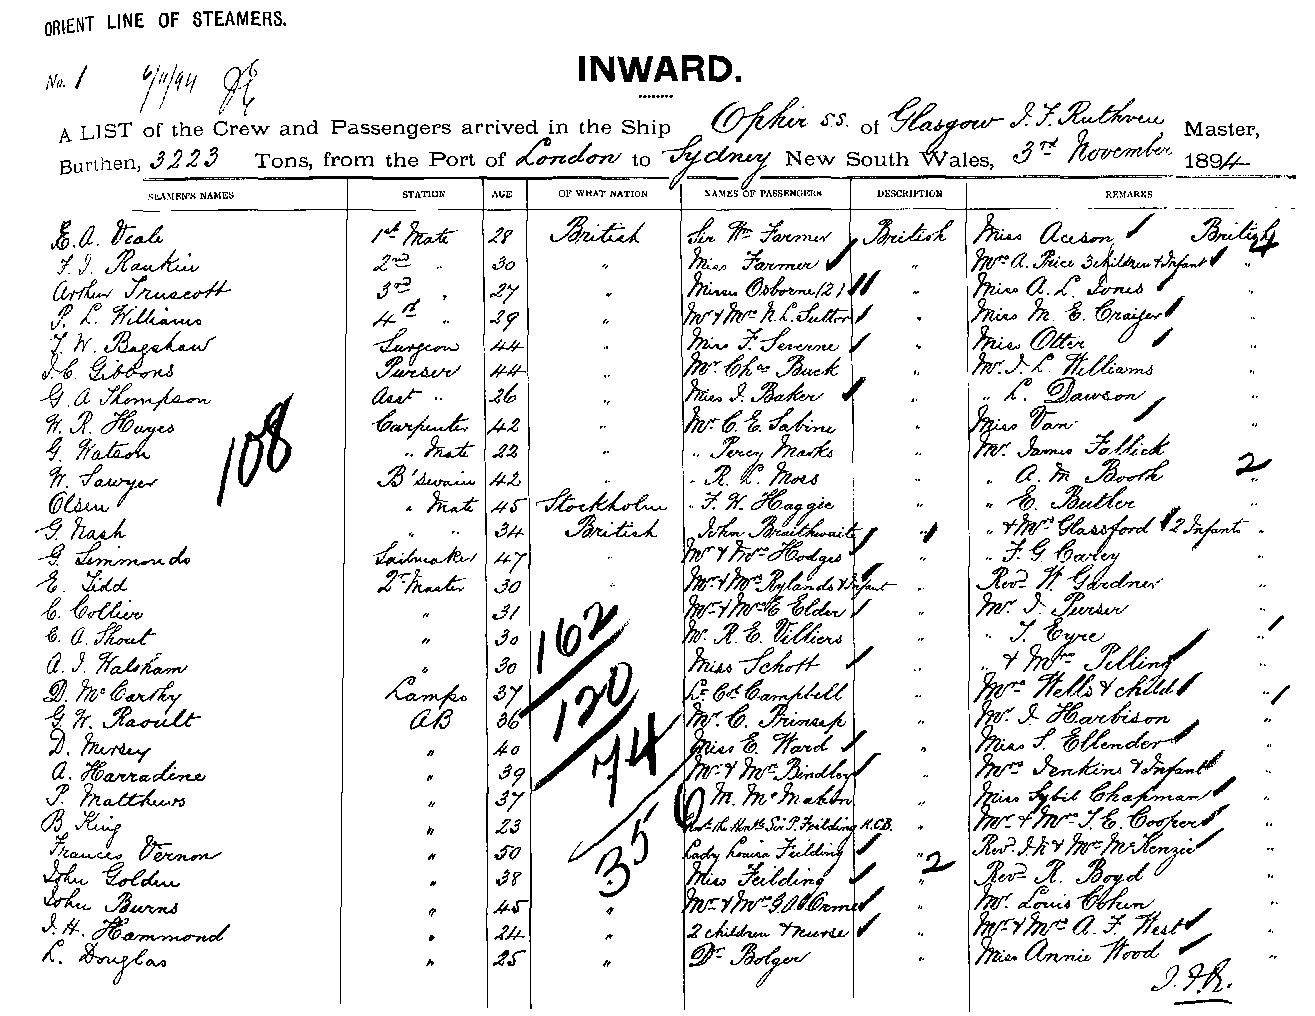 ORIENT LINE OF STEAMERS.
No. 1 6/11/94
INWARD.
A LIST of the Crew and Passengers arrived in the Ship Ophir SS. of Glasgow J. F. Ruthven Master,
Burthen, 3223 Tons, from the Port of London to Sydney New South Wales, 3rd November 1894
SEAMEN'S NAMES STATION AGE OF WHAT NATION NAMES OF PASSENGERS DESCRIPTION REMARKS
E. A. Veale 1st Mate 28 British Sir Wm Farmer British Miss Aceson British 4
F. J. Rankin 2nd " 30 " Miss Farmer " Mrs A. Price 3 children & Infant "
Arthur Truscott 3rd " 27 " Misses Osborne (2) " Miss A. L. Jones "
P. L. Williams 4th " 29 " Mr & Mrs N. L. Sutton " Miss M. E. Craiger "
F. W. Bagshaw Surgeon 44 " Miss F. Severne " Miss Otter "
J. C. Gibbons Purser 44 " Mr Chas Buck " Mr. J. L. Williams "
G. A Thompson Asst " 26 " Miss J. Baker " " L. Dawson "
W. R. Hayes Carpenter 42 " Mr C. E. Sabine " Miss Van "
G. Watson " Mate 22 " " Percy Marks " Mr. James Fallick "
W. Sawyer B'swain 42 " " R. L. Moss " " A. M. Booth 2
Olsen " Mate 45 Stockholm " F. W. Haggie " " E. Butler "
G. Nash " " 34 British John Braithwaite " " & Mrs Glassford & 2 Infants "
G. Simmonds Sailmaker 47 " Mr & Mrs Hodges " " F. G Carey "
E. Tidd 2r Master 30 " Mr & Mrs Rylands & Infant " Revd W. Gardner "
C. Collier " 31 " Mr & Mrs E Elder " Mr. J. Purser "
E. A. Shout " 30 Mr. R. E. Villiers " " T. Eyre "
A. J. Walsham " 30 Miss Schott " " & Mrs Pelling "
D. McCarthy Lamps 37 Lt Col Campbell " Mrs Wells & child "
G. W. Raoult AB 36 Mr. C. Prinsep " Mr. J. Harbison "
D. Mersey " 40 Miss E. Ward " Miss S. Ellender "
A. Harradine " 39 Mr & Mrs Bindloy " Mrs Jenkins & Infant "
P. Matthews " 37 M. McMahon " Miss Sybil Chapman "
B King " 23 Sir P. Feilding K.C.B. Mr & Mrs T. E. Cooper "
Frances Vernon " 50 Lady Louisa Feilding " 2 Revd. J. K & Mrs McKenzie "
John Golden " 38 Miss Feilding " Revd R. Boyd "
John Burns " 45 " Mr & Mrs G. A. Orme " Mr. Louis Cohen "
J. H. Hammond " 24 " 2 children & nurse " Mr & Mrs A. F. West "
L. Douglas " 25 " Dr Bolger " Miss Annie Wood "
108
162
120
74
356
J. F. R.